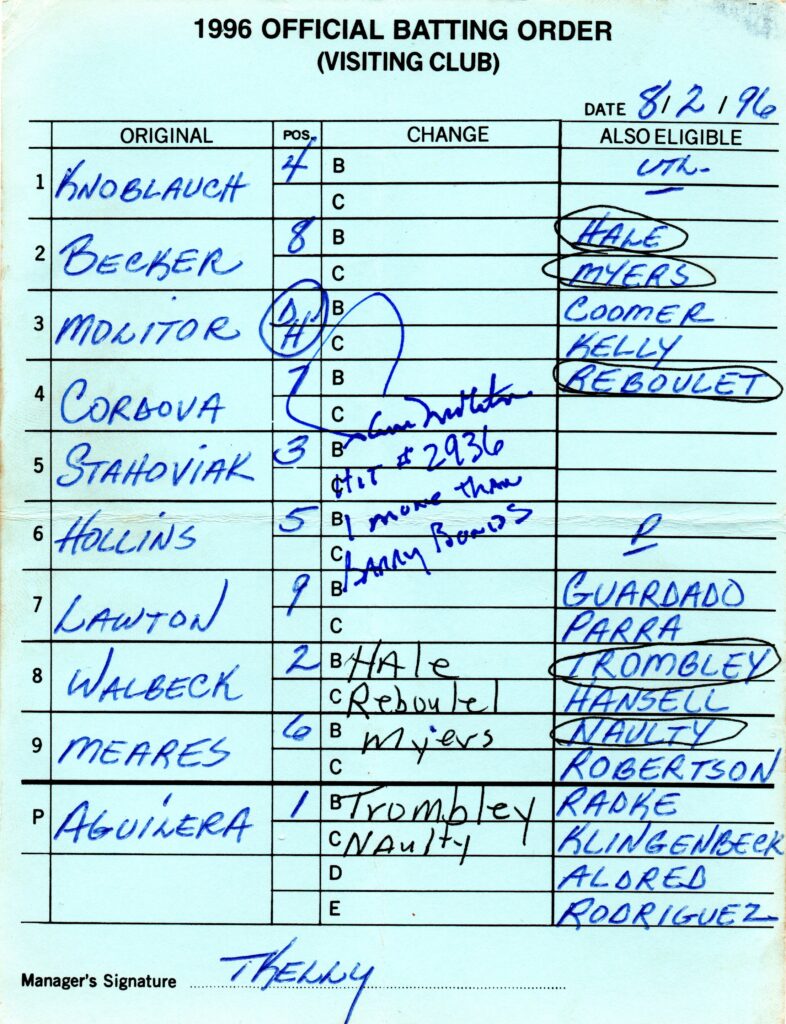 1996 OFFICIAL BATTING ORDER
(VISITING CLUB)
DATE 8/2/96
ORIGINAL POS. CHANGE ALSO ELIGIBLE
1 KNOBLAUCH 4 B UTL.
C
2 BECKER 8 B HALE
C MYERS
3 MOLITOR DH B COOMER
C KELLY
4 CORDOVA 7 B REBOULET
C
5 STAHOVIAK 3 B
HIT # 2936
C
1 MORE THAN
6 HOLLINS 5 B
BARRY BONDS
C P
7 LAWTON 9 B GUARDADO
C PARRA
8 WALBECK 2 B HAle TROMBLEY
C Reboulel HANSELL
9 MEARES 6 B Myers NAULTY
C ROBERTSON
P AGUILERA 1 B Trombley RADKE
C NAulty KLINGENBECK
D ALDRED
E RODRIGUEZ
Manager's Signature TKELLY